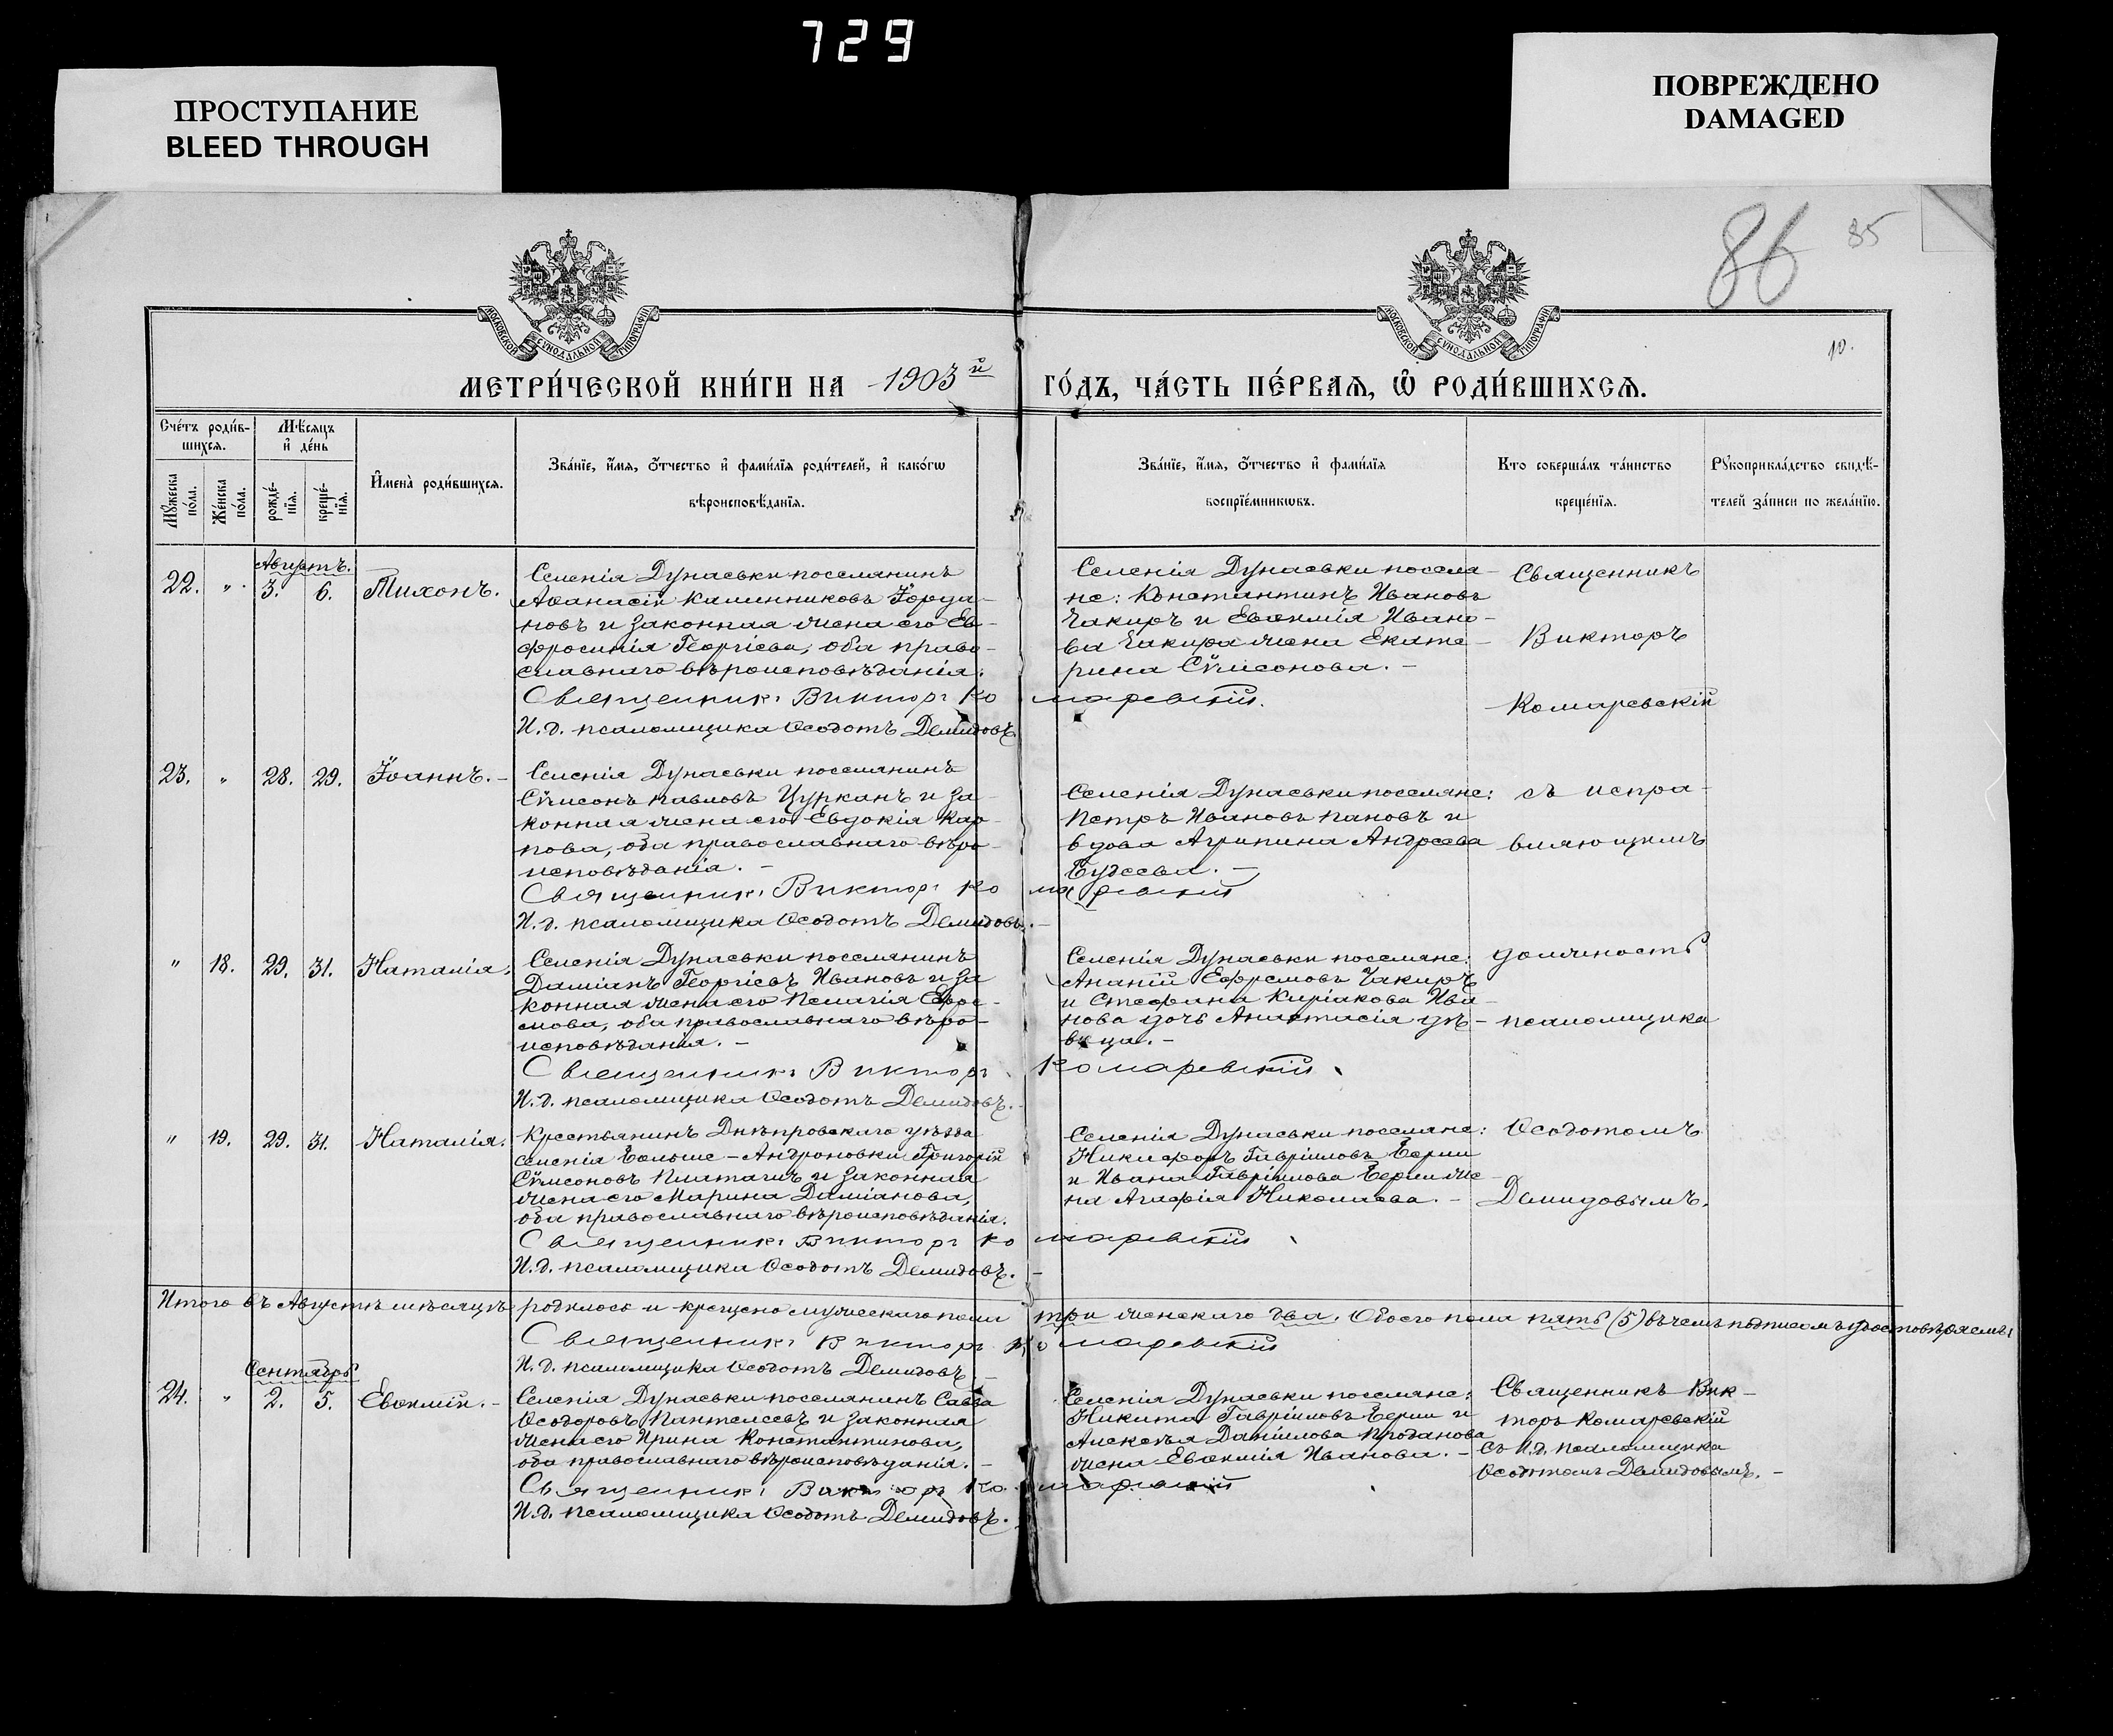 729
ПРОСТУПАНИЕ
BLEED THROUGH
ПОВРЕЖДЕНО
DAMAGED
86
85
10.
МОСКОВСКОЙ СУНОДАЛЬНОЙ ТИПОГРАФІИ
МОСКОВСКОЙ СУНОДАЛЬНОЙ ТИПОГРАФІИ
МЕТРИ́ЧЕСКОЙ КНИ́ГИ НА 1903й ГО́ДЪ, ЧА́СТЬ ПЕ́РВАѦ, Ѡ҆ РОДИ́ВШИХСѦ.
Сче́тъ роди́в-
шихсѧ.
Мꙋжеска по́ла.
Же́нска по́ла.
Мѣ́сѧцъ
и҆ де́нь
рожде́-
нїѧ.
креще́-
нїѧ.
И҆мена̀ роди́вшихсѧ.
Зва́нїе, и҆́мѧ, ѻ҆́тчество и҆ фами́лїѧ роди́телей, и҆ како́гѡ
вѣроисповѣ́данїѧ.
Зва́нїе, и҆́мѧ, ѻ҆́тчество и҆ фами́лїѧ
воспрїе́мникѡвъ.
Кто соверша́лъ та́инство
креще́нїѧ.
Рꙋкоприкла́дство свидѣ́-
телей за́писи по жела́нїю.
Августъ.
22. " 3. 6. Тихонъ.
Селенія Дунаевки поселянинъ
Аѳанасій Калинниковъ Іорда-
новъ и законная жена его Ев-
фросинія Георгіева, оба право-
славнаго вѣроисповѣданія.
Священникъ Викторъ Комаревскій.
И. д. псаломщика Ѳеодотъ Демидовъ.
Селенія Дунаевки поселя-
не: Константинъ Ивановъ
Чакиръ и Евѳимія Ивано-
ва Чакира жена Екате-
рина Сѵмсонова. -
Священникъ
Викторъ
Комаревскій
23. " 28. 29. Іоаннъ. -
Селенія Дунаевки поселянинъ
Сѵмсонъ Павловъ Цурканъ и за-
конная жена его Евдокія Кар-
пова, оба православнаго вѣро-
исповѣданія. -
Священникъ Викторъ Комаревскій
И. д. псаломщика Ѳеодотъ Демидовъ. -
Селенія Дунаевки поселяне:
Петръ Ивановъ Пановъ и
вдова Агрипина Андреева
съ испра-
вляющимъ
" 18. 29. 31. Наталія.
Селенія Дунаевки поселянинъ
Даміанъ Георгіевъ Ивановъ и за-
конная жена его Пелагія Ефре-
мова, оба православнаго вѣро-
исповѣданія. -
Священникъ Викторъ Комаревскій
И. д. псаломщика Ѳеодотъ Демидовъ. -
Селенія Дунаевки поселяне:
Ананій Ефремовъ Чакиръ
и Стефана Киріакова Ива-
нова дочь Анастасія дѣ-
вица. -
должность
псаломщика
" 19. 29. 31. Наталія.
Крестьянинъ Днѣпровскаго уѣзда
селенія Больше-Андроновки Григорій
Сѵмсоновъ и законная
жена его Марина Даміанова,
оба православнаго вѣроисповѣданія.
Священникъ Викторъ Комаревскій
И. д. псаломщика Ѳеодотъ Демидовъ. -
Селенія Дунаевки поселяне:
Никифоръ Гавріиловъ Берши
и Ивана Гавріилова Берши же-
на Агафія Николаева. -
Ѳеодотомъ
Демидовымъ.
Итого въ Августѣ мѣсяцѣ родилось и крещено мужескаго пола три женскаго два. Обоего пола пять (5) въ чемъ подписомъ удостовѣряемъ:
Священникъ Викторъ Комаревскій
И. д. псаломщика Ѳеодотъ Демидовъ. -
Сентябрь
24. " 2. 5. Евѳимій. -
Селенія Дунаевки поселянинъ Савва
Ѳеодоровъ Пантелеевъ и законная
жена его Ирина Константинова,
оба православнаго вѣроисповѣданія. -
Священникъ Викторъ Комаревскій
И. д. псаломщика Ѳеодотъ Демидовъ.
Селенія Дунаевки поселяне:
Никита Гавріиловъ Берши и
Алексѣя Даніилова Проданова
жена Евѳимія Иванова. -
Священникъ Вик-
торъ Комаревскій
съ и.д. псаломщика
Ѳеодотомъ Демидовымъ. -